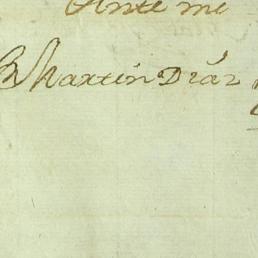 Ante mi
Martin Diaz